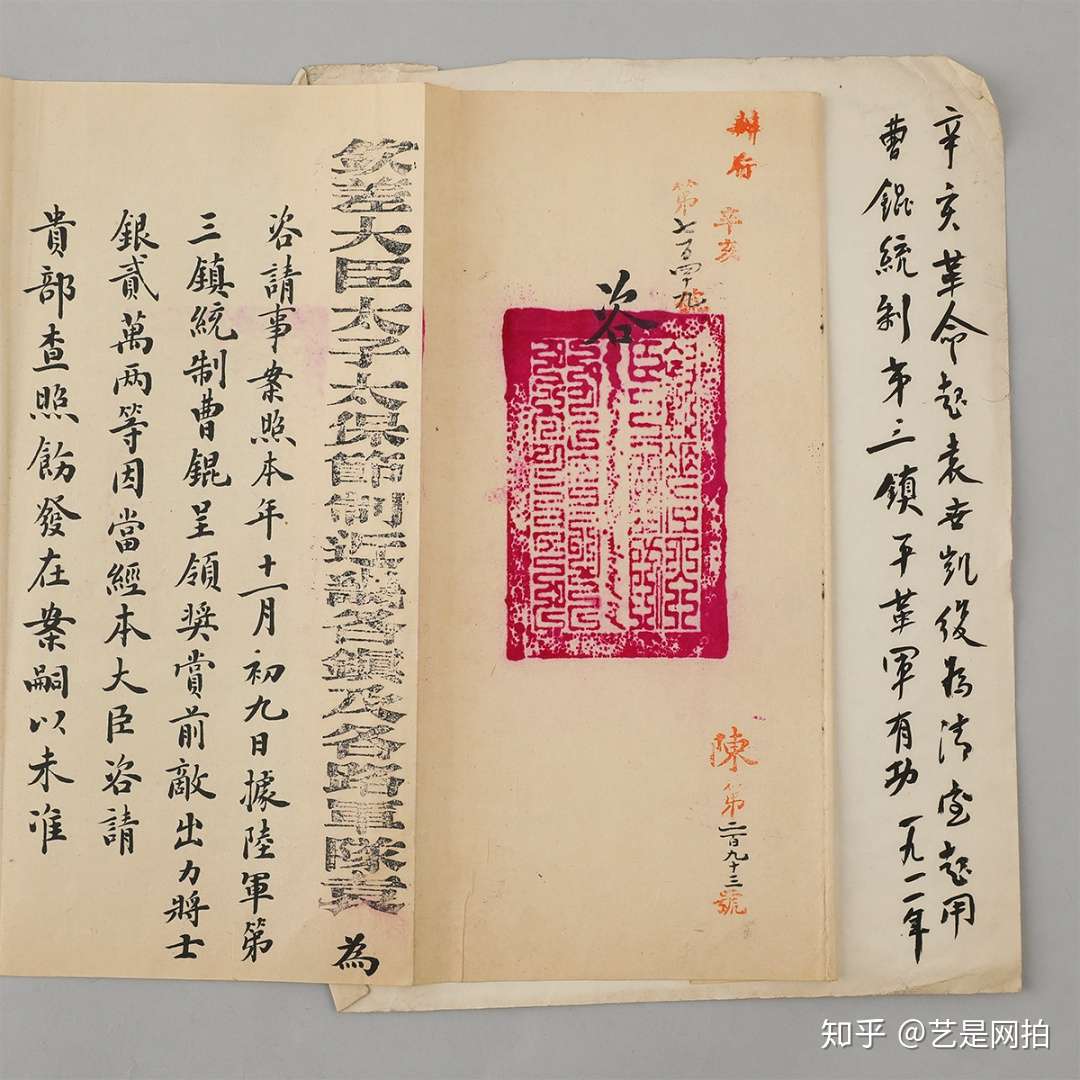 辛亥革命起袁世凯后为清室起用
曹錕統制第三鎮平革軍有功一九一一年
辛亥
第七百四十九號
咨
陳第二百九十三號
欽差大臣太子太保節制近畿各鎮及各路軍隊袁為
咨請事案照本年十一月初九日據陸軍第
三鎮統制曹錕呈領奬賞前敵出力將士
銀貳萬两等因當經本大臣咨請
貴部查照飭發在案嗣以未准
知乎 @艺是网拍